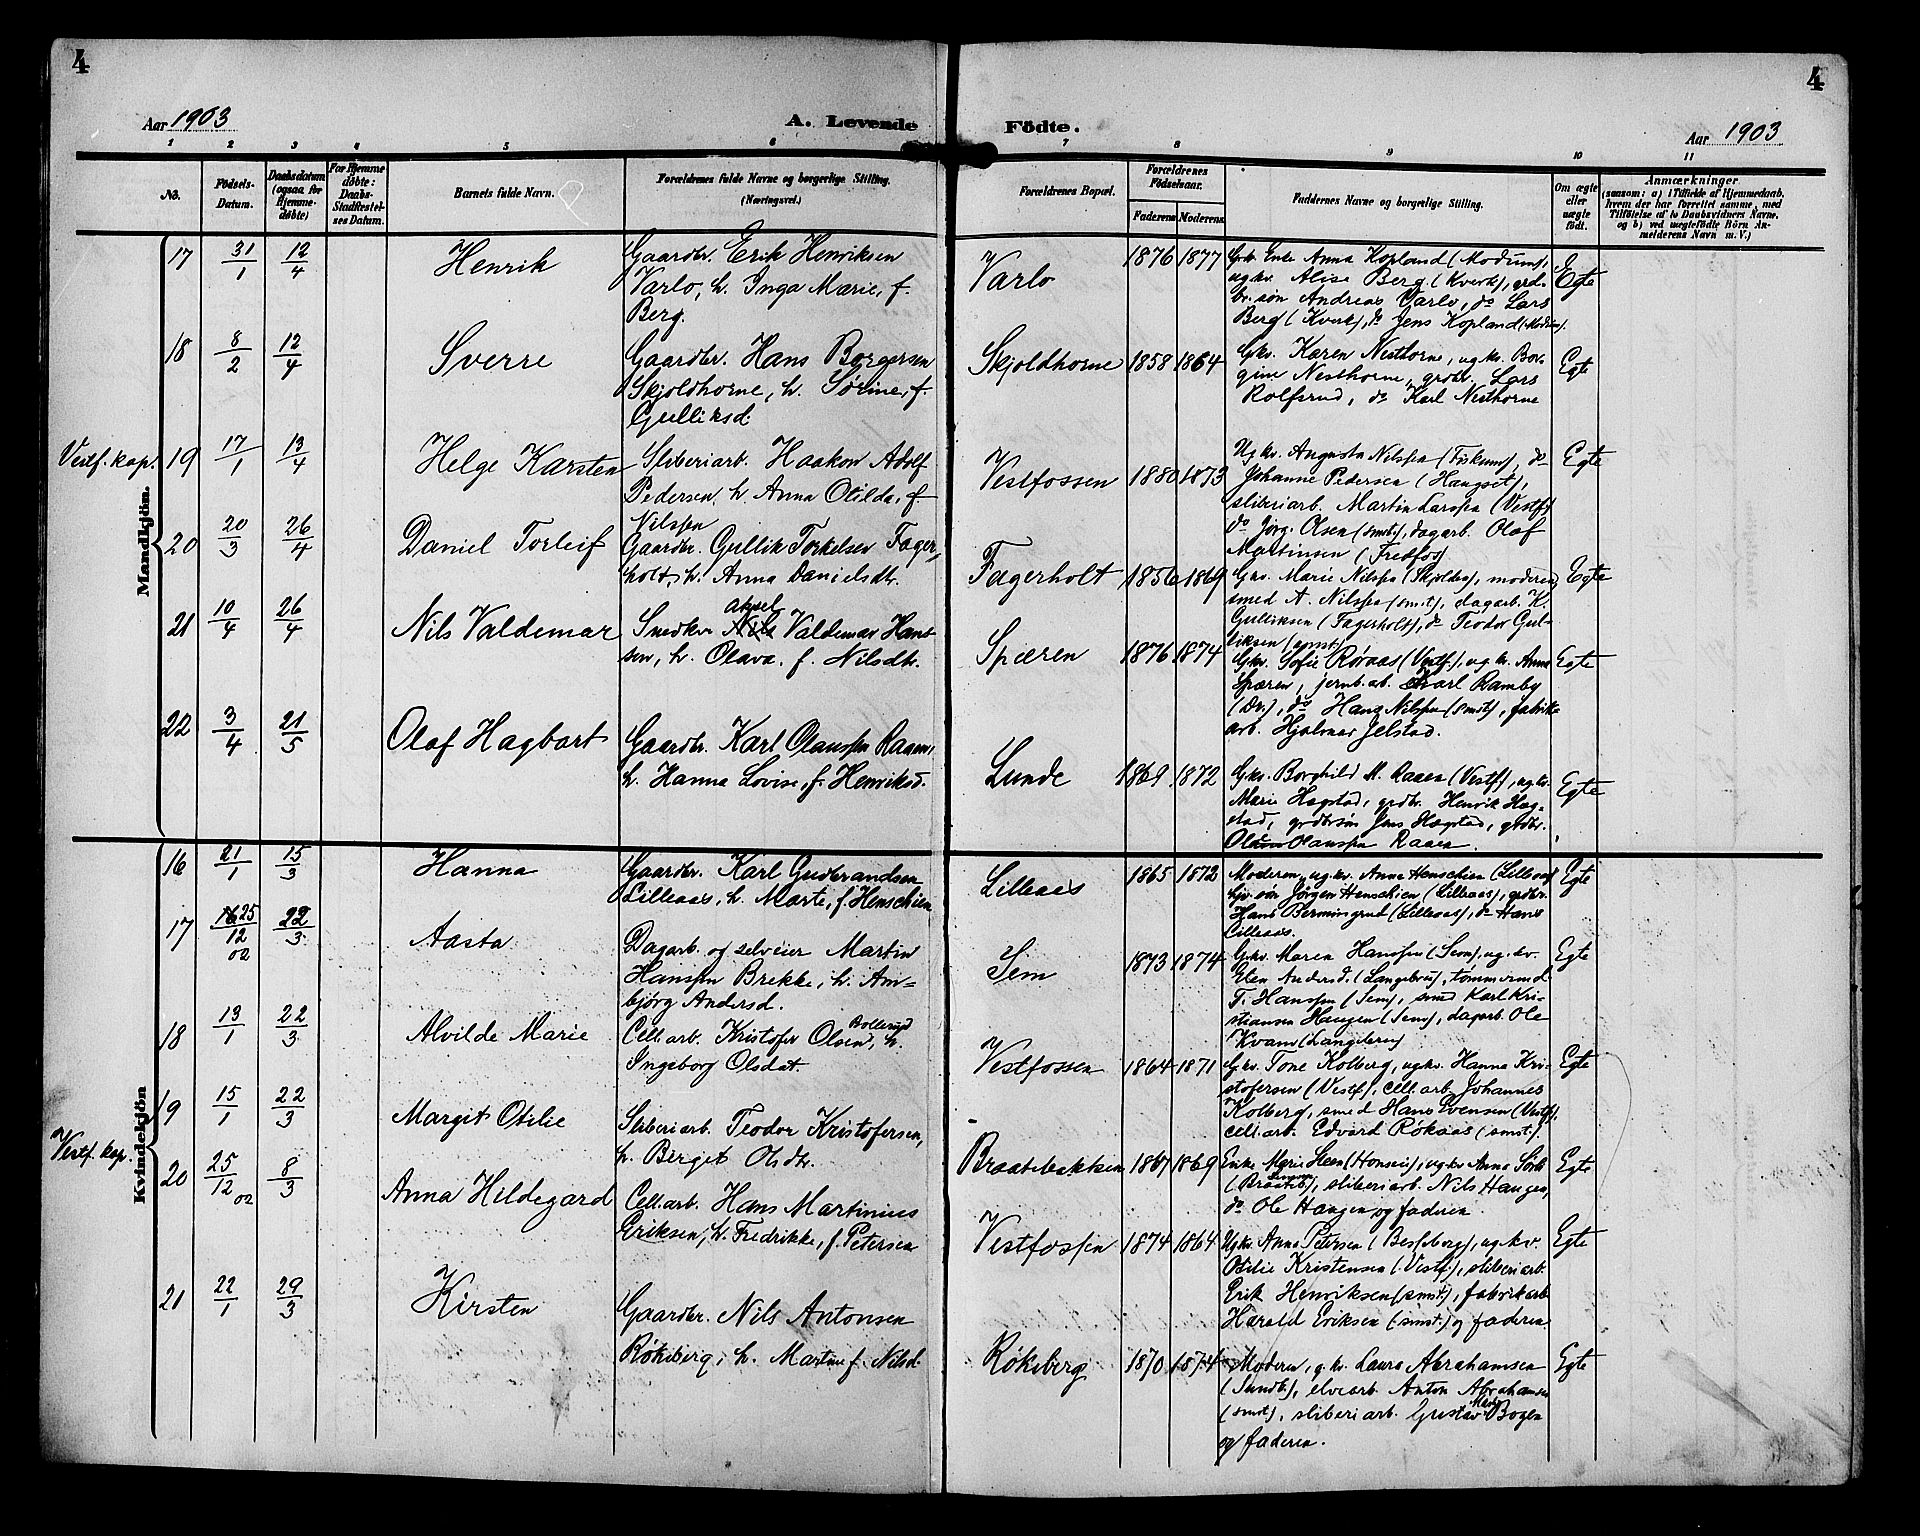 4
4
Aar 1903
A. Levende
Födte.
Aar 1903
1 2 3 4 5 6 7 8 9 10 11
No.
Födsels-
Datum.
Daabsdatum
(ogsaa for
Hjemme-
døbte)
For Hjemme
døbte:
Daabs-
Stadfæstel-
ses Datum.
Barnets fulde Navn.
Forældrenes fulde Navne og borgerlige Stilling.
(Næringsvei.)
Forældrenes Bopæl.
Forældrenes
Födselsaar.
Faderens Moderens
Faddernes Navne og borgerlige Stilling.
Om ægte
eller
uægte
født.
Anmærkninger
(saasom: a) i Tilfælde af Hjemmedaab,
hvem der har forrettet samme, med
Tilføielse af to Daabsvidners Navne.
og b) ved uægtefödte Börn An-
melderens Navn m. V.)
Mandkjön.
17 31/1 12/4 Henrik
Gaardbr. Erik Henriksen
Varlo, h. Inga Marie, f.
Berg.
Varlo 1876 1877
Enke Anna Kopland (Modum),
ugkv. Alise Berg (Kverk), grd-
br. søn Andreas Varlo, do Lars
Berg (Kverk), do Jens Kopland (Modum).
Egte
18 8/2 12/4 Sverre
Gaardbr. Hans Borgersen
Skjoldhorne, h. Sørine, f.
Gulliksd.
Skjoldhorne 1858 1864
Gkv. Karen Nesthorne, ugkv. Bor-
gine Nesthorne, grdbr. Lars
Rolfsrud, do Karl Nesthorne
Egte
Vestf. kap. 19 17/1 13/4 Helge Karsten
Sliberiarb. Haakon Adolf
Pedersen, h. Anna Otilda, f.
Nilssen
Vestfossen 1880 1873
Ugkv. Augusta Nilssen (Fiskum), do
Johanne Pedersen (Haugset),
sliberiarb. Martin Larssen (Vestf)
do Jörg. Olsen (smst), dagarb. Olaf
Martinsen (Fredfos)
Egte
20 20/3 26/4 Daniel Torleif
Gaardbr. Gullik Torkelsen Fager-
holt, h. Anna Danielsdtr.
Fagerholt 1856 1869
Gkv. Marie Nilssen, moderen,
smed A. Nilssen (smst), dagarb. K.
Gulliksen (Fagerholt), do Teodor Gul-
liksen (smst)
Egte
21 10/4 26/4 Nils Valdemar
Aksel
Snedker Nils Valdemar Hans-
sen, h. Olava, f. Nilsdtr.
Spæren 1876 1874
Gkv. Sofie Røraas (Vestf.), ugkv. Anna
Spæren, jernb.arb. Karl Ramby
(Dr.), do Hans Nilssen (smst), fabrik-
arb. Hjalmar Jelstad.
Egte
22 3/4 21/5 Olaf Hagbart
Gaardbr. Karl Olanssen Raaen,
h. Hanna Lovise, f. Henriksd.
Lunde 1869 1872
Gkv. Borghild M. Raaen (Vestf), ugkv.
Marie Hagstad, grdbr. Henrik Hag-
stad, grdbrsøn Jens Hagstad, grdbr.
Olanssen Raaen.
Egte
Kvindekjön
16 21/1 15/3 Hanna
Gaardbr. Karl Gudbrandsen
Lilleaas, h. Marte, f. Henschien
Lilleaas 1865 1872
Moderen, ugkv. Anna Henschien (Lilleaas)
søn Jørgen Henschien (Lilleaas), grdbr.
Hans Bermingrud (Lilleaas), do Hans
Lilleaas.
Egte
17 25/12 02 22/3 Aasta
Dagarb. og selveier Martin
Hanssen Brekke, h. Am-
björg Andersd.
Sem 1873 1874
Gkv. Maren Hanssen (Sem), ugkv.
Elen Andersd. (Langebru), tømmermd
T. Hanssen (Sem), smed Karl Kri-
stiansen Haugen (Sem), dagarb. Ole
Kvam (Langebru)
Egte
18 13/1 22/3 Alvilde Marie
Bollerud
Cell.arb. Kristofer Olsen, h.
Ingeborg Olsdat.
Vestfossen 1864 1871
Gkv. Tone Kolberg, ugkv. Hanna Kri-
stofersen (Vestf), cell.arb. Johannes
Kolberg, smed Hans Evensen (Vestf),
cell.arb. Edvard Røkaas (smst).
Egte
19 15/1 22/3 Margit Otilie
Sliberiarb. Teodor Kristofersen,
h. Berget Olsdtr.
Braatebakken 1867 1869
Enke Marie Steen (Honsei), ugkv Anna
sliberiarb. Nils Haugen,
do Ole Haugen og faderen.
Egte
Vestf. kap. 20 25/12 02 8/3 Anna Hildegard
Cell.arb. Hans Martinius
Eriksen, h. Fredrikke, f. Petersen
Vestfossen 1874 1864
Ugkv. Anna Petersen (Besseberg), ugkv.
Otilie Kristensen (Vestf.), sliberiarb.
Erik Henriksen (smst), fabrikarb
Harald Eriksen (smst.) og faderen.
Egte
21 22/1 29/3 Kirsten
Gaardbr. Nils Antonsen
Røkeberg, h. Martine f. Nilsd.
Røkeberg 1870 1874
Moderen, gkv. Laura Abrahamsen
(Sundb), elvearb. Anton Abrahamsen
(smst), sliberiarb. Gustav Bogen
og faderen.
Egte